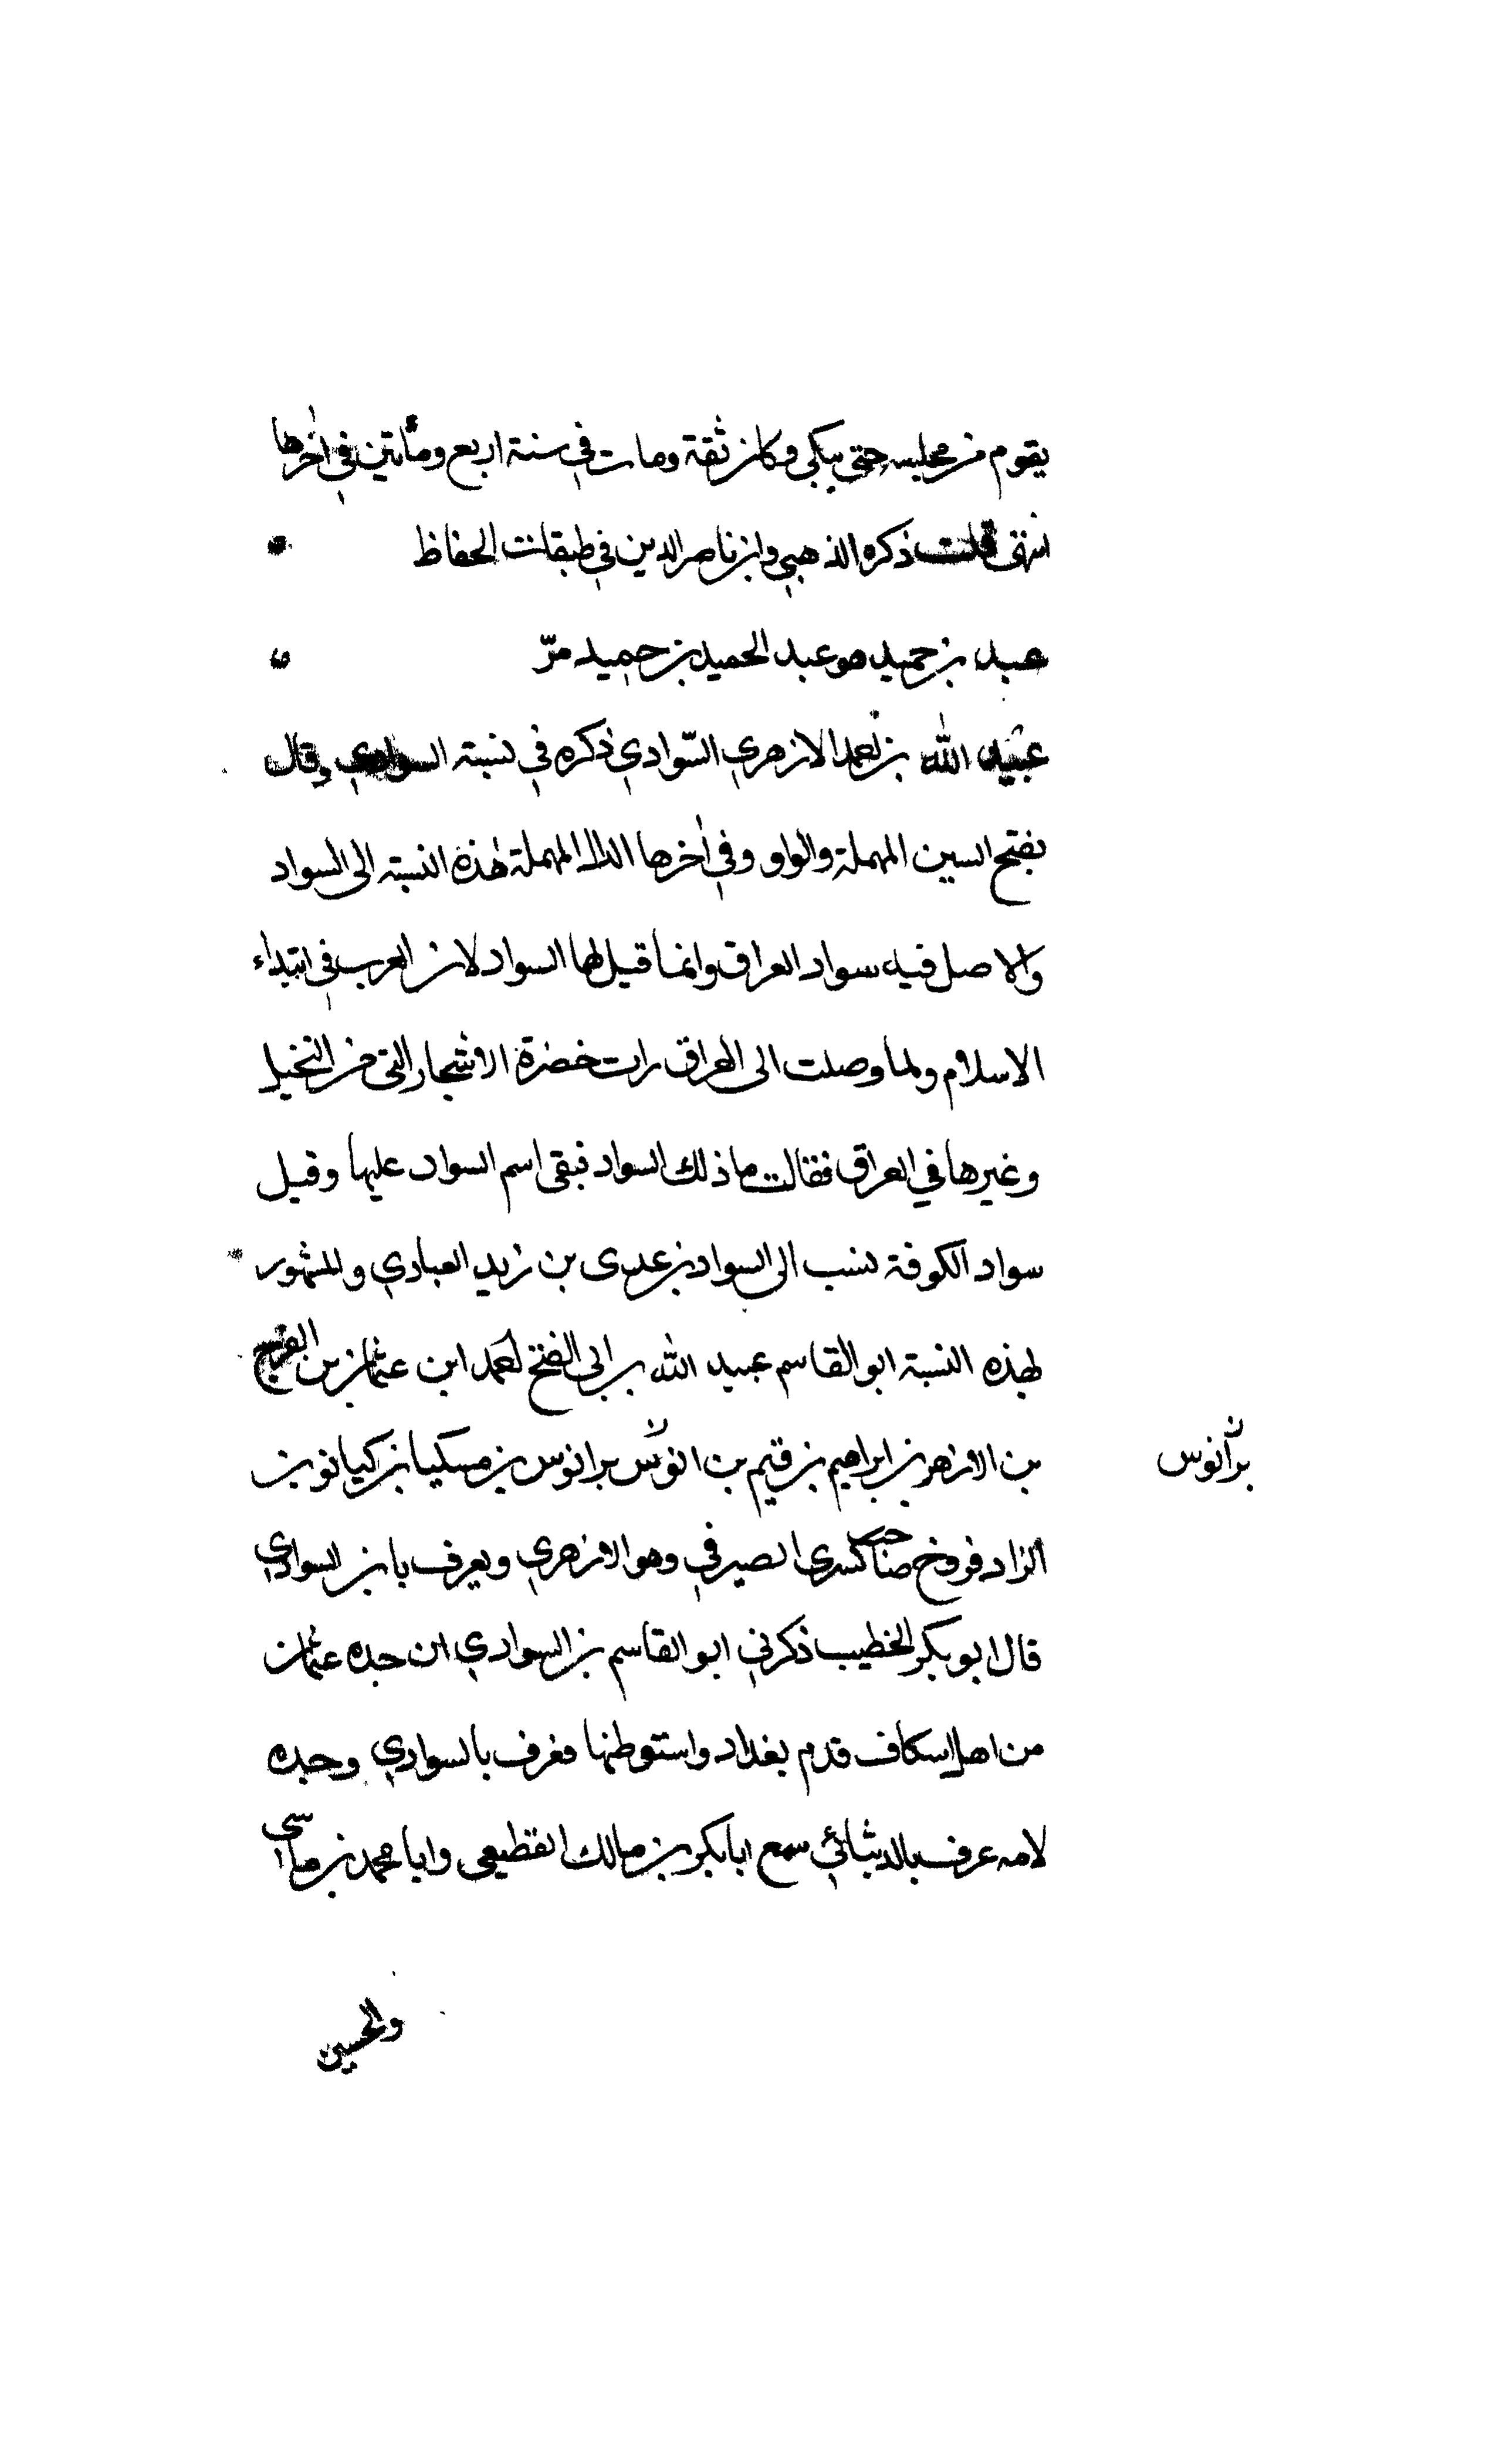 يقوم من مجلسه حتى يبكي وكان ثقة ومات في سنة اربع ومأتين في اخرها
انتهى قلت ذكره الذهبي وابن ناصر الدين في طبقات الحفاظ
عبد بن حميد هو عبد الحميد بن حميد مرّ
عبيد الله بن احمد الازهري السّوادي ذكره في نسبة السوادي وقال
بفتح السين المهملة والواو وفي اخرها الدال المهملة هذه النسبة الى السواد
والاصل فيه سواد العراق وانما قيل لها السواد لان العرب في ابتداء
الاسلام ولما وصلت الى العراق رات خضرة الاشجار التي من النخيل
وغيرها في العراق فقالت ما ذلك السواد فبقى اسم السواد عليها وقيل
سواد الكوفة نسب الى السواد بن عدى بن زيد العبادي والمشهور
بهذه النسبة ابو القاسم عبيد الله بن ابى الفتح احمد ابن عثمان بن الفرج
بن الازهر بن ابراهيم بن قيم بن انوس برانوس بن مسكيا بن كيانو بن
الزاد فروخ صاحب كسرى الصيرفي وهو الازهري ويعرف بابن السوادي
قال ابو بكر الخطيب ذكر لي ابو القاسم بن السوادي ان جده عثمان
من اهل اسكاف قدم بغداد واستوطنها فعرف بالسوادي وجده
لامه عرف بالدبثائي سمع ابا بكر بن مالك القطيعي وابا محمد بن ماسي
برانوس
والحسين